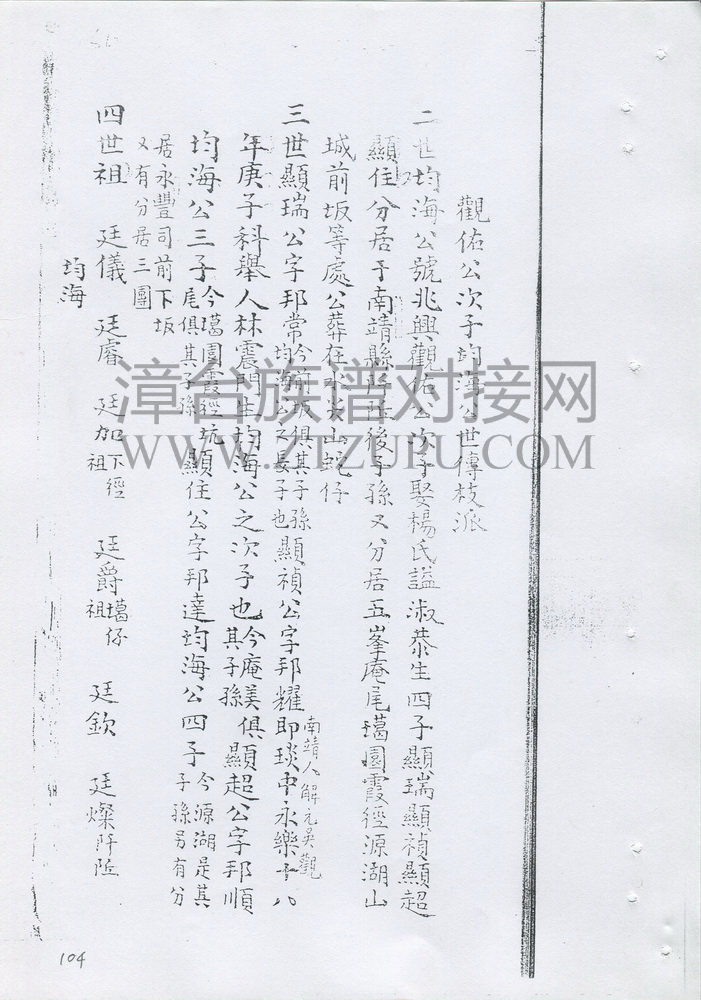 觀佑公次子均海公世傳枝派
二世均海公號兆興觀佑公次子娶楊氏謚淑恭生四子顯瑞顯禎顯超
顯住分居于南靖縣後子孫又分居五峯庵尾璣園霞徑源湖山
城前坂等處公葬在水尖山蛇仔
三世顯瑞公字邦常今前坂俱其子孫均海公之長子也顯禎公字邦耀即琰中永樂十八南靖人解元吳觀
年庚子科舉人林震門生均海公之次子也今庵美其子孫俱顯超公字邦順
均海公三子今璣園霞徑坑尾俱其子孫顯住公字邦達均海公四子今源湖是其子孫另有分
居永豐司前下坂
又有分居三團
四世祖 廷儀 廷睿 廷加下徑祖 廷爵璣仔祖 廷欽 廷燦
均海
104
漳台族谱对接网
WWW.ZTZUPU.COM